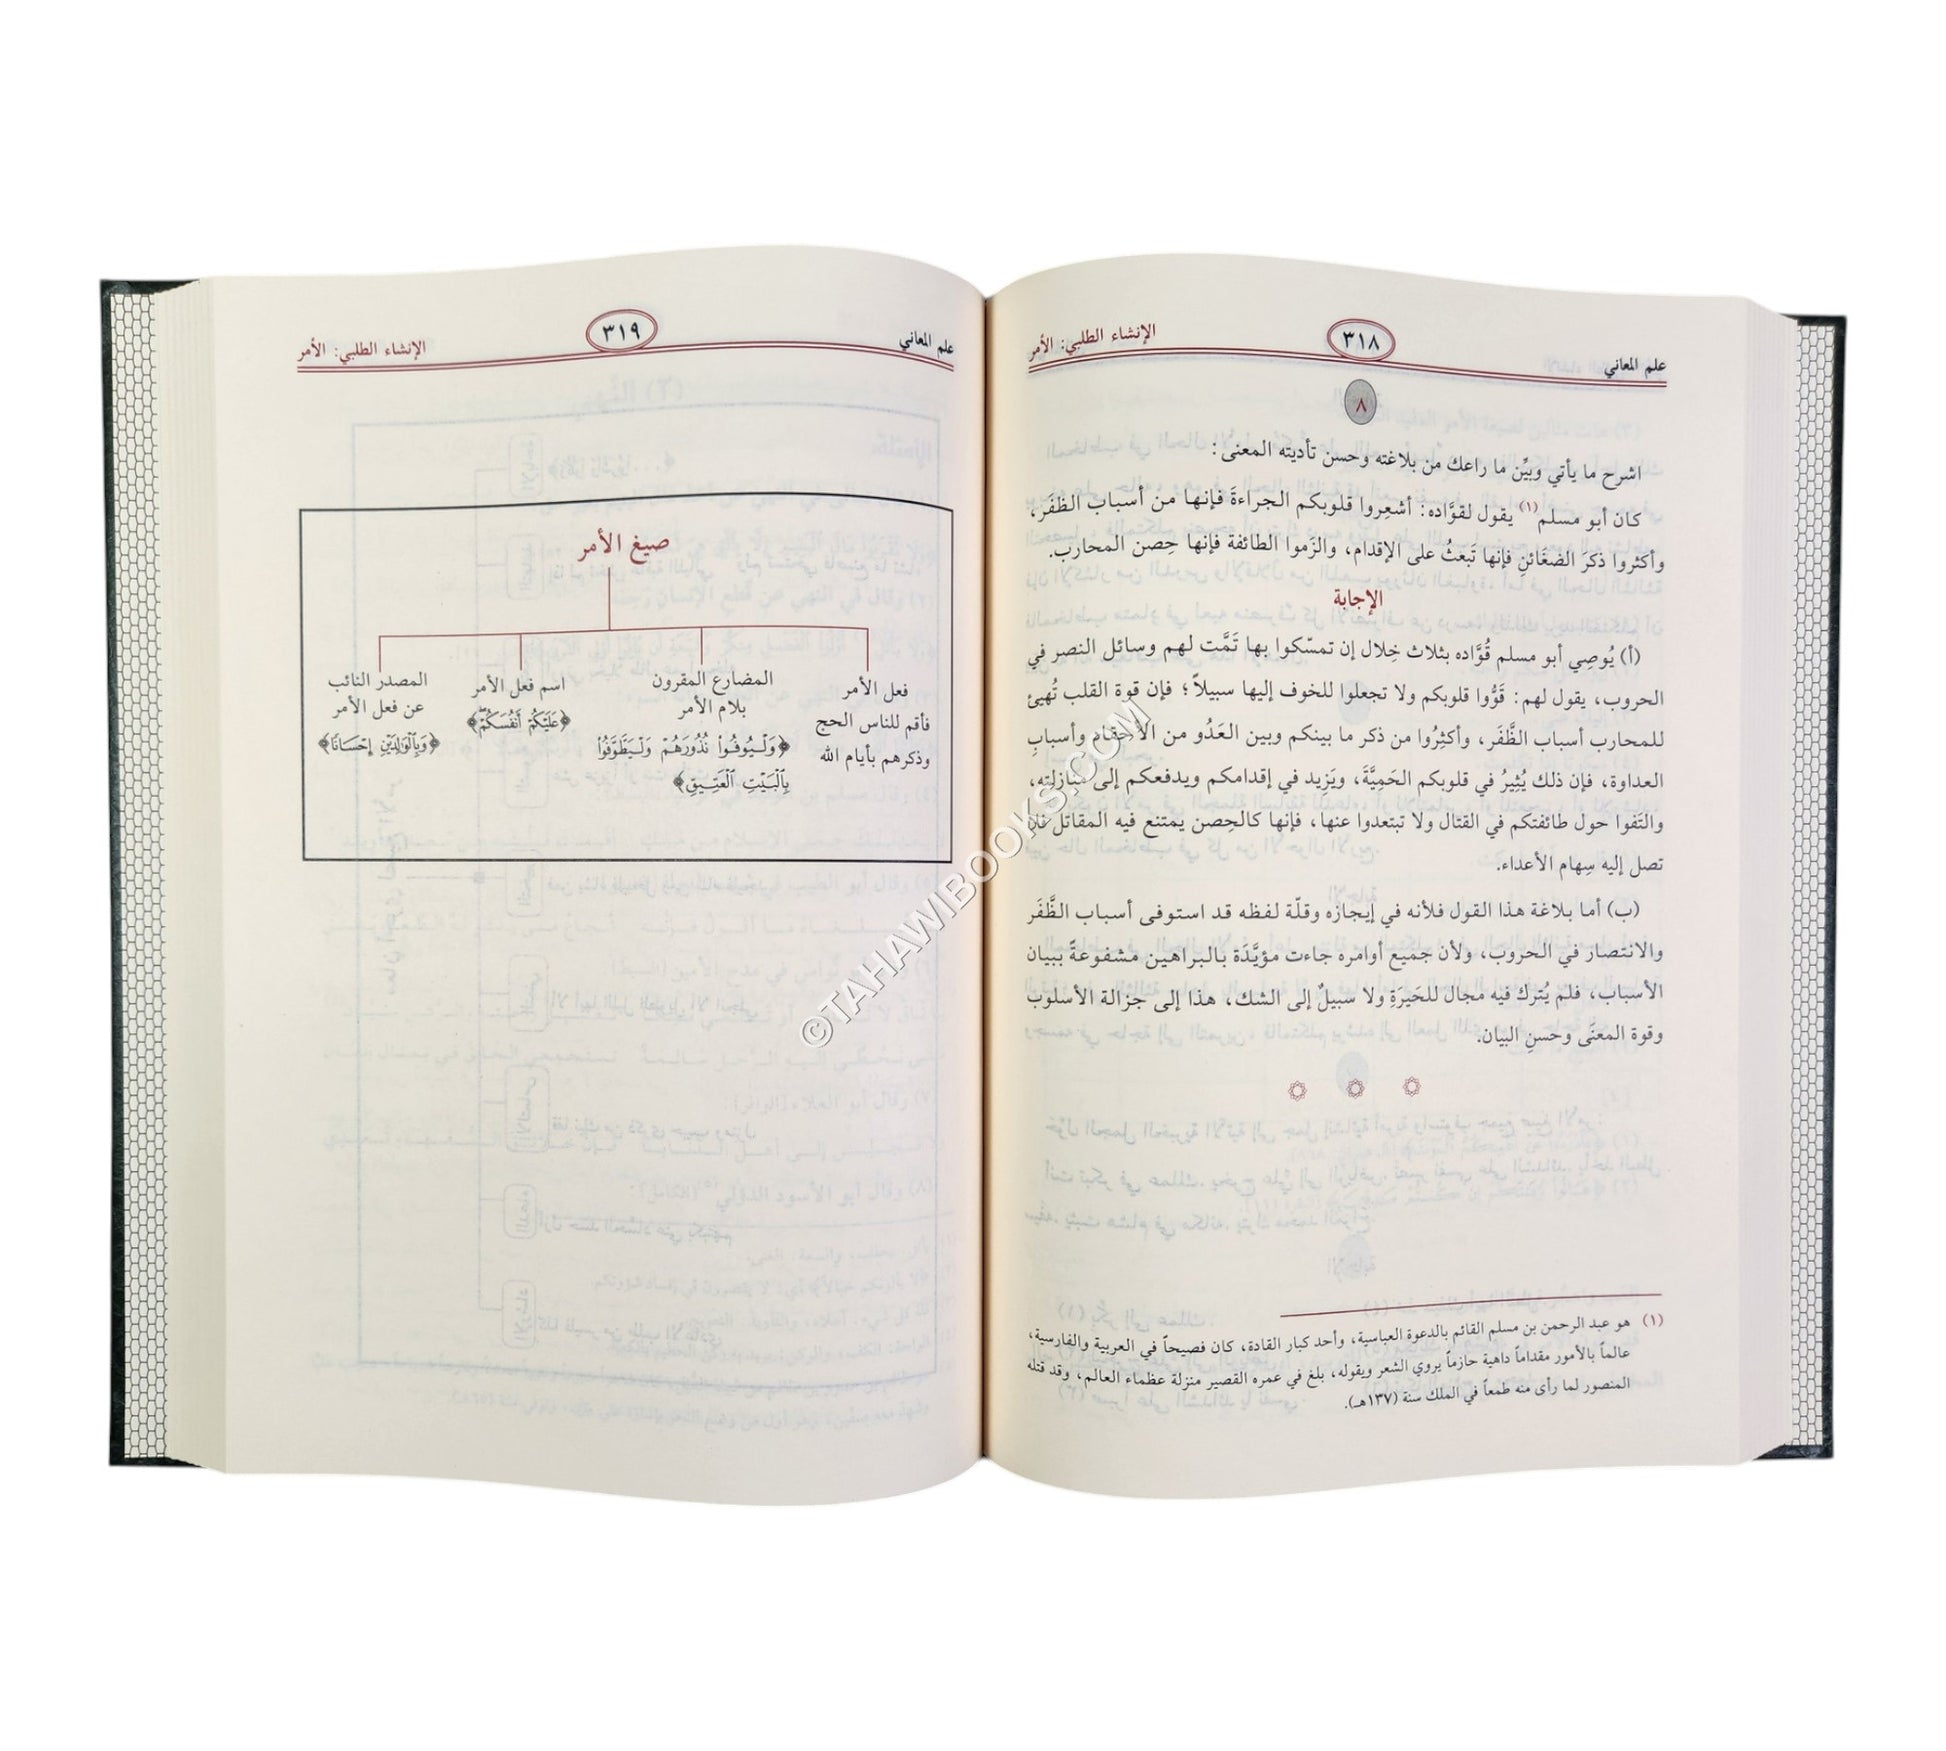 علم المعاني
٣١٨
الإنشاء الطلبي: الأمر
٨
اشرح ما يأتي وبيِّن ما راعك من بلاغته وحسن تأديته المعنى:
كان أبو مسلم(١) يقول لقوَّاده: أشعِروا قلوبكم الجراءةَ فإنها من أسباب الظفَر،
وأكثروا ذكرَ الضغَائنِ فإنها تَبعثُ على الإقدام، والزَموا الطائفة فإنها حِصن المحارب.
الإجابة
(أ) يُوصِي أبو مسلم قُوَّاده بثلاث خِلال إن تمسّكوا بها تَمَّت لهم وسائل النصر في
الحروب، يقول لهم: قَوُّوا قلوبكم ولا تجعلوا للخوف إليها سبيلاً؛ فإن قوة القلب تُهيئ
للمحارب أسباب الظَّفَر، وأكثِرُوا من ذكر ما بينكم وبين العَدُو من الأحقاد وأسبابِ
العداوة، فإن ذلك يُثِيرُ في قلوبكم الحَمِيَّةَ، ويَزِيد في إقدامكم ويدفعكم إلى منازلتِه،
والتَفوا حول طائفتكم في القتال ولا تبتعدوا عنها، فإنها كالحِصن يمتنع فيه المقاتل فلا
تصل إليه سِهام الأعداء.
(ب) أما بلاغة هذا القول فلأنه في إيجازه وقلّة لفظه قد استوفى أسباب الظَّفَر
والانتصار في الحروب، ولأن جميع أوامره جاءت مؤيَّدَة بالبراهين مشفوعةً ببيان
الأسباب، فلم يُترك فيه مجال للحَيرَةِ ولا سبيلٌ إلى الشك، هذا إلى جزالة الأسلوب
وقوة المعنَى وحسنِ البيان.
(١) هو عبد الرحمن بن مسلم القائم بالدعوة العباسية، وأحد كبار القادة، كان فصيحاً في العربية والفارسية،
عالماً بالأمور مقداماً داهية حازماً يروي الشعر ويقوله، بلغ في عمره القصير منزلة عظماء العالم، وقد قتله
المنصور لما رأى منه طمعاً في الملك سنة (١٣٧هـ).
علم المعاني
٣١٩
الإنشاء الطلبي: الأمر
صيغ الأمر
فعل الأمر
فأقم للناس الحج
وذكرهم بأيام الله
المضارع المقرون
بلام الأمر
﴿وَلْيُوفُوا۟ نُذُورَهُمْ وَلْيَطَّوَّفُوا۟
بِٱلْبَيْتِ ٱلْعَتِيقِ﴾
اسم فعل الأمر
﴿عَلَيْكُمْ أَنفُسَكُمْ﴾
المصدر النائب
عن فعل الأمر
﴿وَبِٱلْوَٰلِدَيْنِ إِحْسَانًا﴾
©TAHAWIBOOKS.COM